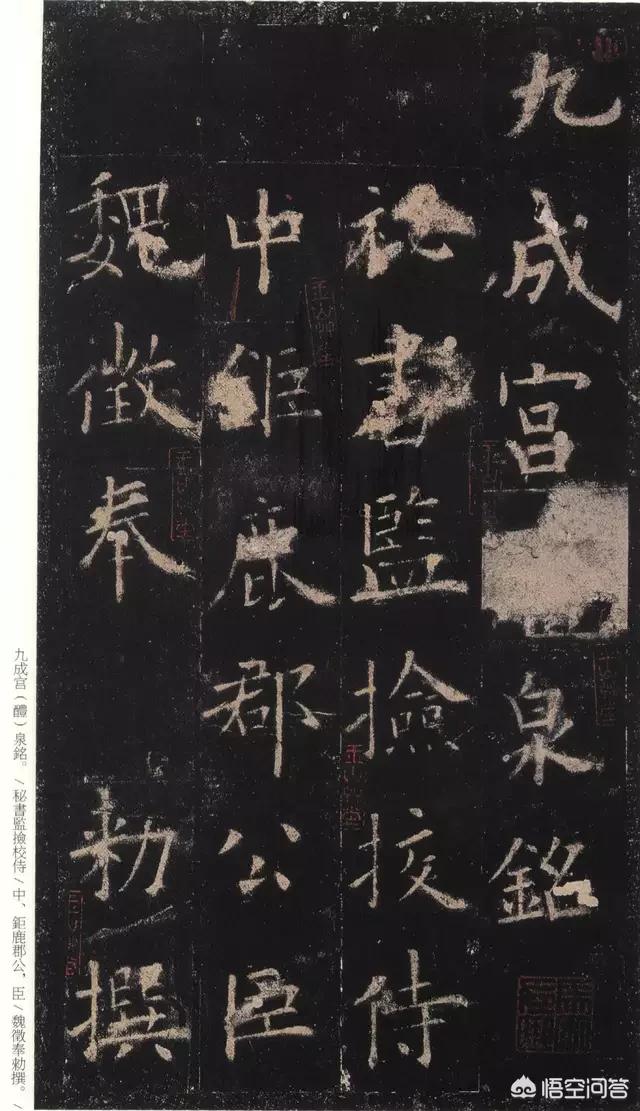 九成宫泉銘
祕書監撿挍侍
中鉅鹿郡公臣
魏徵奉勅撰
九成宫(醴)泉銘。/秘書監撿校侍/中、鉅鹿郡公,臣/魏徵奉勅撰。/
悟空问答